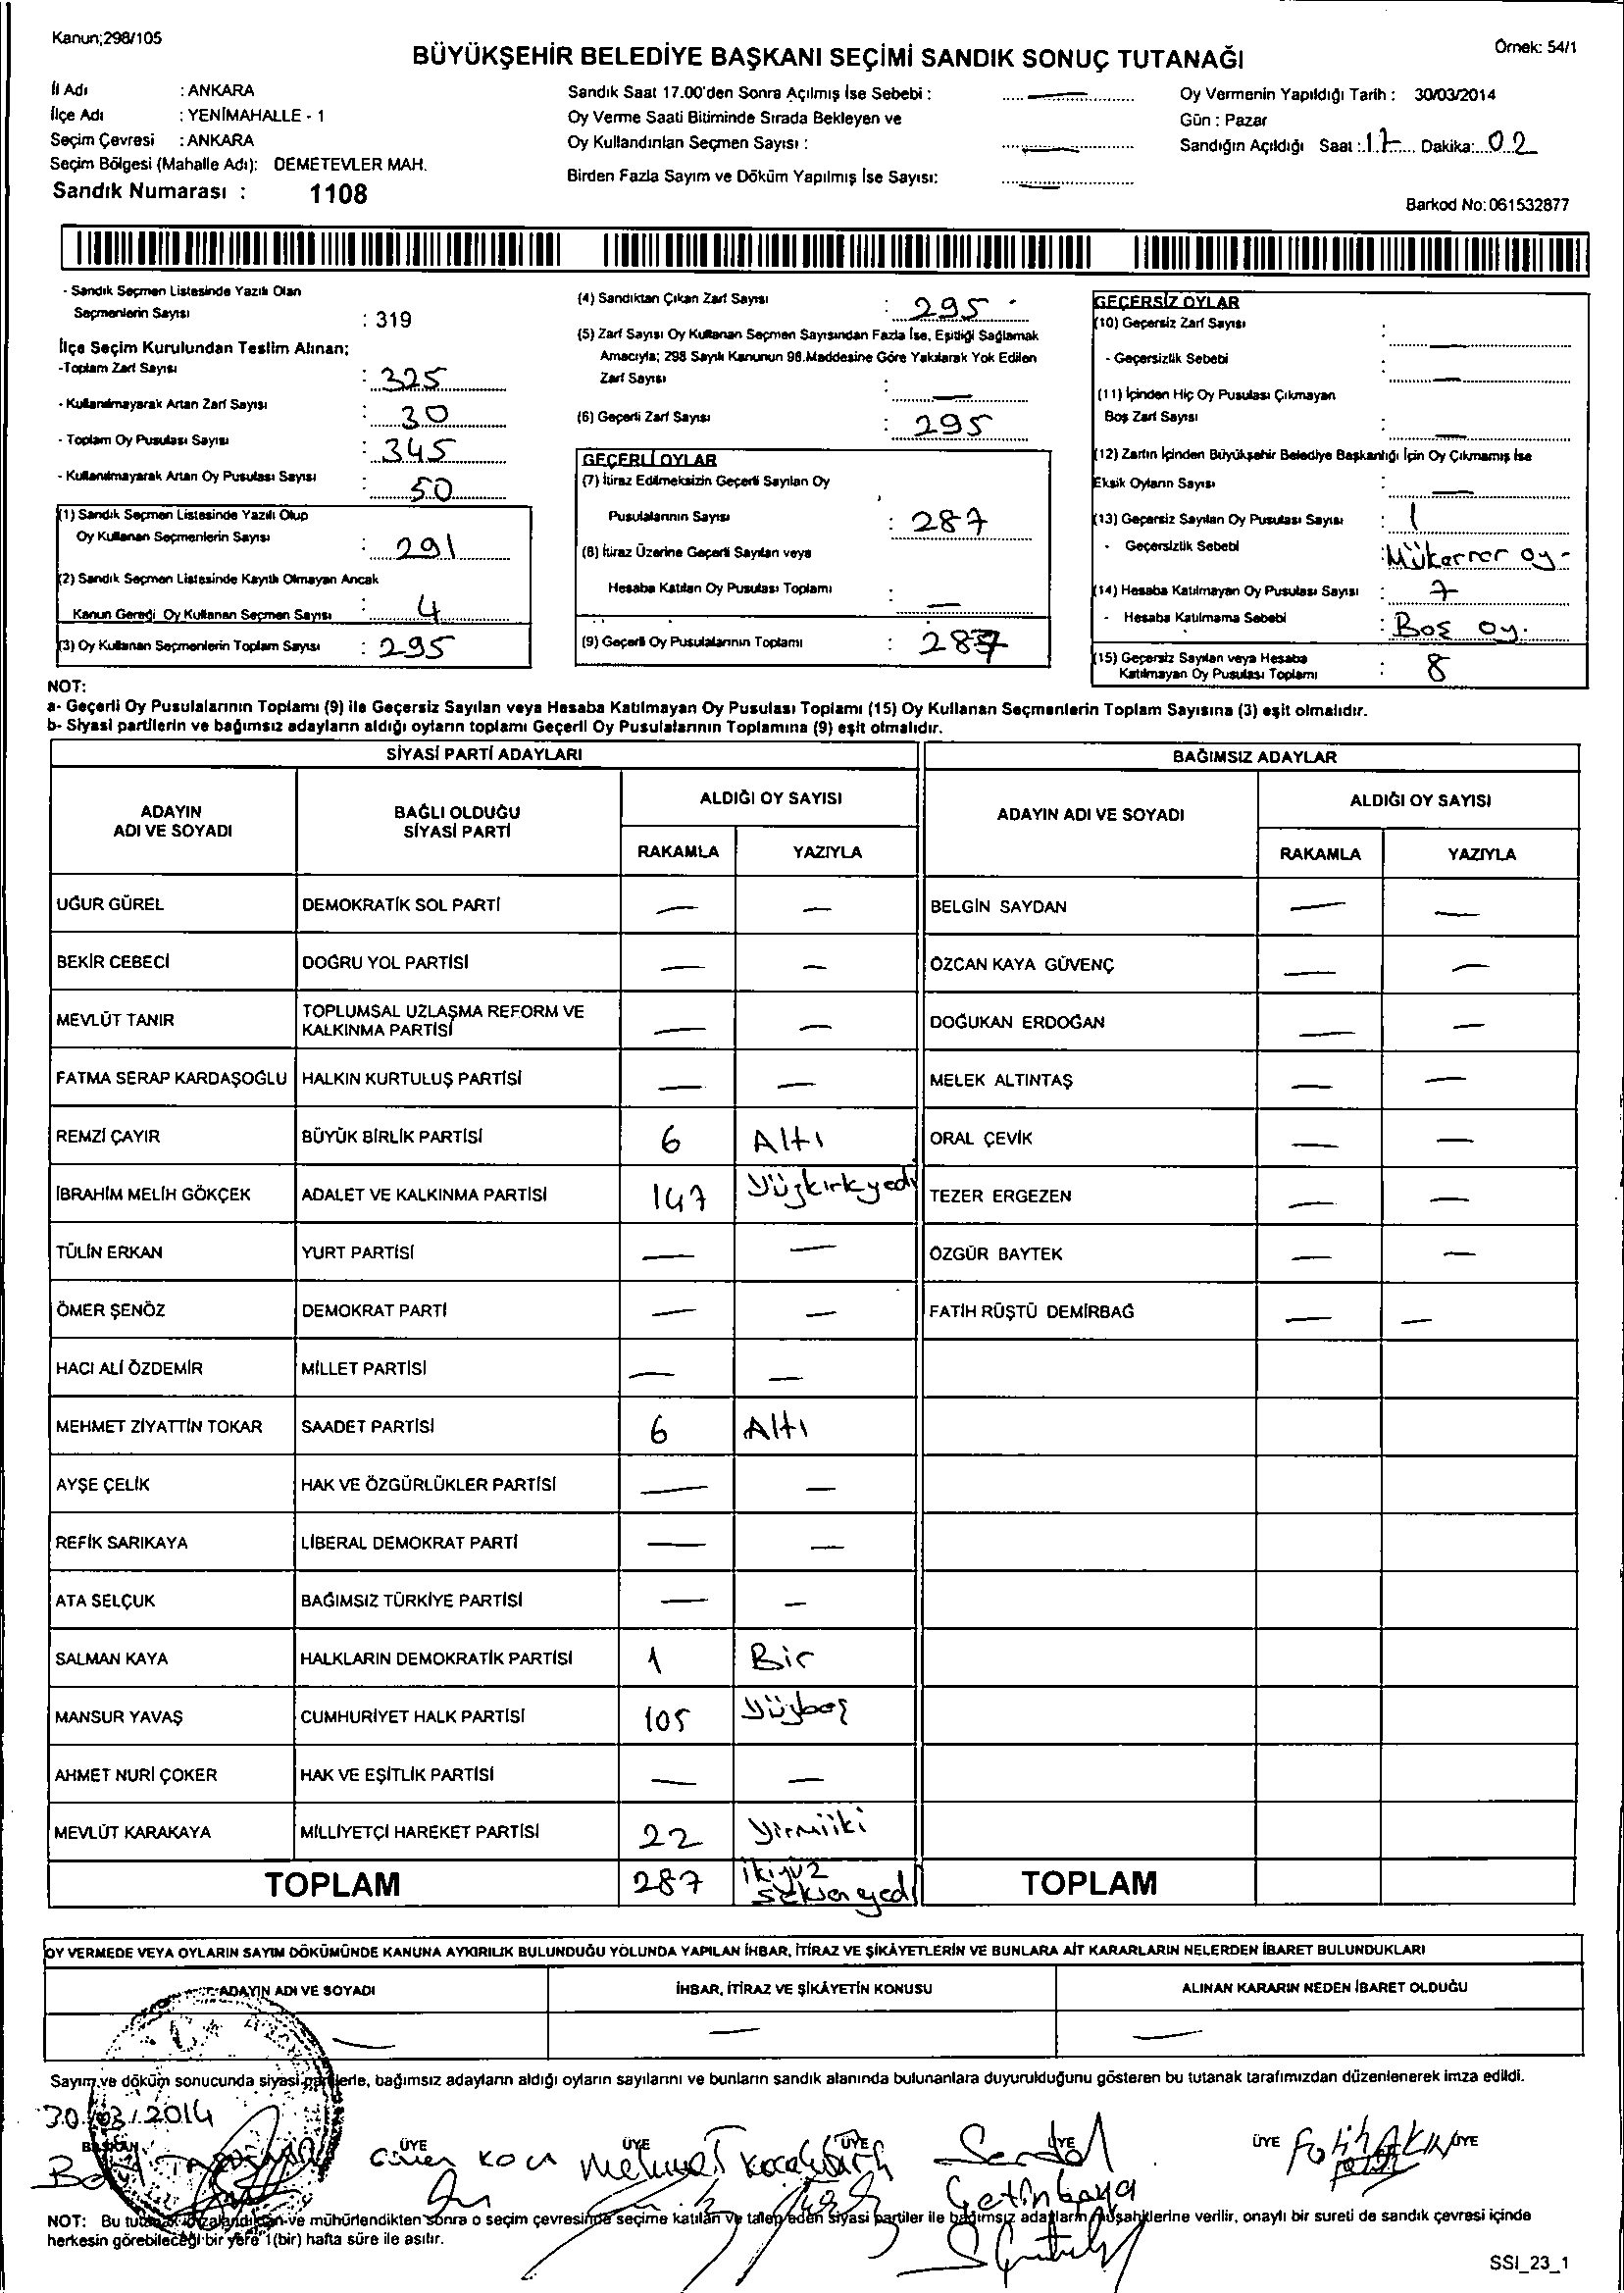 Kanun;298/105
Örnek: 54/1
BÜYÜKŞEHİR BELEDİYE BAŞKANI SEÇİMİ SANDIK SONUÇ TUTANAĞI
İl Adı : ANKARA
İlçe Adı : YENİMAHALLE - 1
Seçim Çevresi : ANKARA
Seçim Bölgesi (Mahalle Adı): DEMETEVLER MAH.
Sandık Numarası : 1108
Sandık Saat 17.00'den Sonra Açılmış İse Sebebi : —
Oy Verme Saati Bitiminde Sırada Bekleyen ve
Oy Kullandırılan Seçmen Sayısı : —
Birden Fazla Sayım ve Döküm Yapılmış İse Sayısı: —
Oy Vermenin Yapıldığı Tarih : 30/03/2014
Gün : Pazar
Sandığın Açıldığı Saat : 17 Dakika: 02
Barkod No: 061532877
- Sandık Seçmen Listesinde Yazılı Olan
Seçmenlerin Sayısı : 319
İlçe Seçim Kurulundan Teslim Alınan;
-Toplam Zarf Sayısı : 325
- Kullanılmayarak Artan Zarf Sayısı : 30
- Toplam Oy Pusulası Sayısı : 345
- Kullanılmayarak Artan Oy Pusulası Sayısı : 50
(1) Sandık Seçmen Listesinde Yazılı Olup
Oy Kullanan Seçmenlerin Sayısı : 291
(2) Sandık Seçmen Listesinde Kayıtlı Olmayan Ancak
Kanun Gereği Oy Kullanan Seçmen Sayısı : 4
(3) Oy Kullanan Seçmenlerin Toplam Sayısı : 295
(4) Sandıktan Çıkan Zarf Sayısı : 295
(5) Zarf Sayısı Oy Kullanan Seçmen Sayısından Fazla İse, Eşitliği Sağlamak
Amacıyla; 298 Sayılı Kanunun 98.Maddesine Göre Yakılarak Yok Edilen
Zarf Sayısı : —
(6) Geçerli Zarf Sayısı : 295
GEÇERLİ OYLAR
(7) İtiraz Edilmeksizin Geçerli Sayılan Oy
Pusulalarının Sayısı : 287
(8) İtiraz Üzerine Geçerli Sayılan veya
Hesaba Katılan Oy Pusulası Toplamı : —
(9) Geçerli Oy Pusulalarının Toplamı : 287
GEÇERSİZ OYLAR
(10) Geçersiz Zarf Sayısı : —
- Geçersizlik Sebebi : —
(11) İçinden Hiç Oy Pusulası Çıkmayan
Boş Zarf Sayısı : —
(12) Zarfın İçinden Büyükşehir Belediye Başkanlığı İçin Oy Çıkmamış İse
Eksik Oyların Sayısı : —
(13) Geçersiz Sayılan Oy Pusulası Sayısı : 1
- Geçersizlik Sebebi : Mükerrer oy-
(14) Hesaba Katılmayan Oy Pusulası Sayısı : 7
- Hesaba Katılmama Sebebi : Boş oy.
(15) Geçersiz Sayılan veya Hesaba
Katılmayan Oy Pusulası Toplamı : 8
NOT:
a- Geçerli Oy Pusulalarının Toplamı (9) ile Geçersiz Sayılan veya Hesaba Katılmayan Oy Pusulası Toplamı (15) Oy Kullanan Seçmenlerin Toplam Sayısına (3) eşit olmalıdır.
b- Siyasi partilerin ve bağımsız adayların aldığı oyların toplamı Geçerli Oy Pusulalarının Toplamına (9) eşit olmalıdır.
SİYASİ PARTİ ADAYLARI
ADAYIN ADI VE SOYADI
BAĞLI OLDUĞU SİYASİ PARTİ
ALDIĞI OY SAYISI
RAKAMLA YAZIYLA
UĞUR GÜREL DEMOKRATİK SOL PARTİ — —
BEKİR CEBECİ DOĞRU YOL PARTİSİ — —
MEVLÜT TANIR TOPLUMSAL UZLAŞMA REFORM VE KALKINMA PARTİSİ — —
FATMA SERAP KARDAŞOĞLU HALKIN KURTULUŞ PARTİSİ — —
REMZİ ÇAYIR BÜYÜK BİRLİK PARTİSİ 6 Altı
İBRAHİM MELİH GÖKÇEK ADALET VE KALKINMA PARTİSİ 147 Yüzkırkyedi
TÜLİN ERKAN YURT PARTİSİ — —
ÖMER ŞENÖZ DEMOKRAT PARTİ — —
HACI ALİ ÖZDEMİR MİLLET PARTİSİ — —
MEHMET ZİYATTİN TOKAR SAADET PARTİSİ 6 Altı
AYŞE ÇELİK HAK VE ÖZGÜRLÜKLER PARTİSİ — —
REFİK SARIKAYA LİBERAL DEMOKRAT PARTİ — —
ATA SELÇUK BAĞIMSIZ TÜRKİYE PARTİSİ — —
SALMAN KAYA HALKLARIN DEMOKRATİK PARTİSİ 1 Bir
MANSUR YAVAŞ CUMHURİYET HALK PARTİSİ 105 Yüzbeş
AHMET NURİ ÇOKER HAK VE EŞİTLİK PARTİSİ — —
MEVLÜT KARAKAYA MİLLİYETÇİ HAREKET PARTİSİ 22 Yirmiiki
TOPLAM 287 ikiyüz seksenyedi
BAĞIMSIZ ADAYLAR
ADAYIN ADI VE SOYADI
ALDIĞI OY SAYISI
RAKAMLA YAZIYLA
BELGİN SAYDAN — —
ÖZCAN KAYA GÜVENÇ — —
DOĞUKAN ERDOĞAN — —
MELEK ALTINTAŞ — —
ORAL ÇEVİK — —
TEZER ERGEZEN — —
ÖZGÜR BAYTEK — —
FATİH RÜŞTÜ DEMİRBAĞ — —
TOPLAM
OY VERMEDE VEYA OYLARIN SAYIM DÖKÜMÜNDE KANUNA AYKIRILIK BULUNDUĞU YOLUNDA YAPILAN İHBAR, İTİRAZ VE ŞİKÂYETLERİN VE BUNLARA AİT KARARLARIN NELERDEN İBARET BULUNDUKLARI
ADAYIN ADI VE SOYADI İHBAR, İTİRAZ VE ŞİKÂYETİN KONUSU ALINAN KARARIN NEDEN İBARET OLDUĞU
— — —
Sayım ve döküm sonucunda siyasi partilerle, bağımsız adayların aldığı oyların sayılarını ve bunların sandık alanında bulunanlara duyurulduğunu gösteren bu tutanak tarafımızdan düzenlenerek imza edildi.
30/03/2014
BAŞKAN ÜYE ÜYE ÜYE ÜYE ÜYE ÜYE
Mehmet Serdal Fatih AKIN
Çetinkaya
NOT: Bu tutanak imzalandıktan ve mühürlendikten sonra o seçim çevresinde seçime katılan ve talep eden siyasi partiler ile bağımsız adayların müşahitlerine verilir, onaylı bir sureti de sandık çevresi içinde
herkesin görebileceği bir yere 1(bir) hafta süre ile asılır.
SSI_23_1